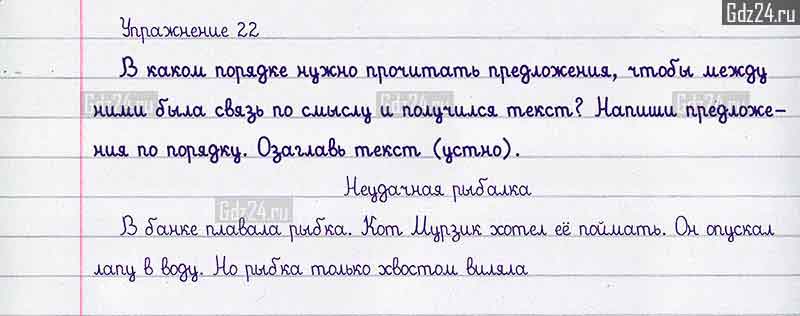 Gdz24.ru
Упражнение 22
В каком порядке нужно прочитать предложения, чтобы между
Gdz24.ru Gdz24.ru
ними была связь по смыслу и получился текст? Напиши предложе-
ния по порядку. Озаглавь текст (устно).
Неудачная рыбалка
Gdz24.ru
В банке плавала рыбка. Кот Мурзик хотел её поймать. Он опускал
лапу в воду. Но рыбка только хвостом виляла